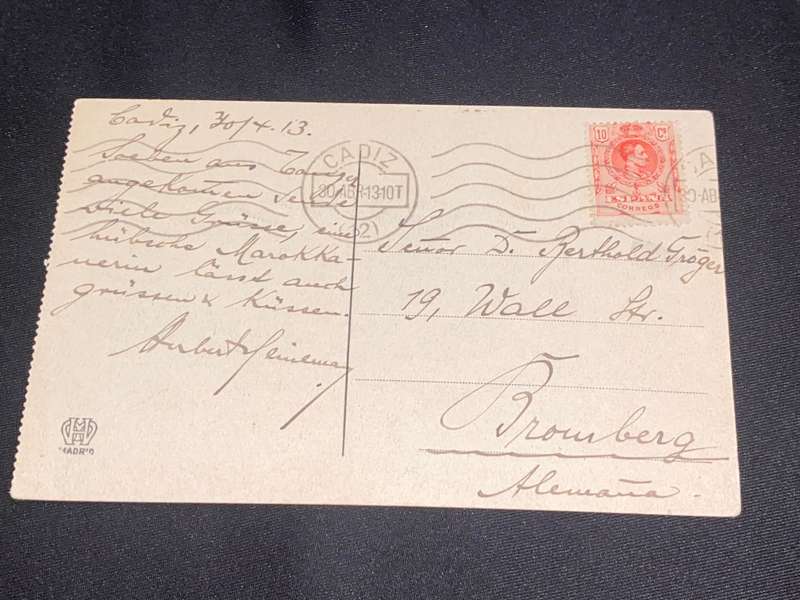 Cadiz, 30/4.13.
Soeben aus Tanger
angekommen sende
viele Grüsse, eine
hübsche Marokka-
nerin lässt auch
grüssen & küssen.
Herbert Heineman
CADIZ
30·ABR·13·10T
10 Cs
ESPAÑA
CORREOS
Señor D. Berthold Tröger
19, Wall Str.
Bromberg
Alemaña.
MADRID